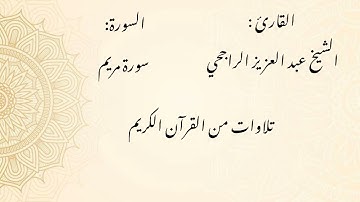 القارئ : السورة:
الشيخ عبد العزيز الراجحي سورة مريم
تلاوات من القرآن الكريم